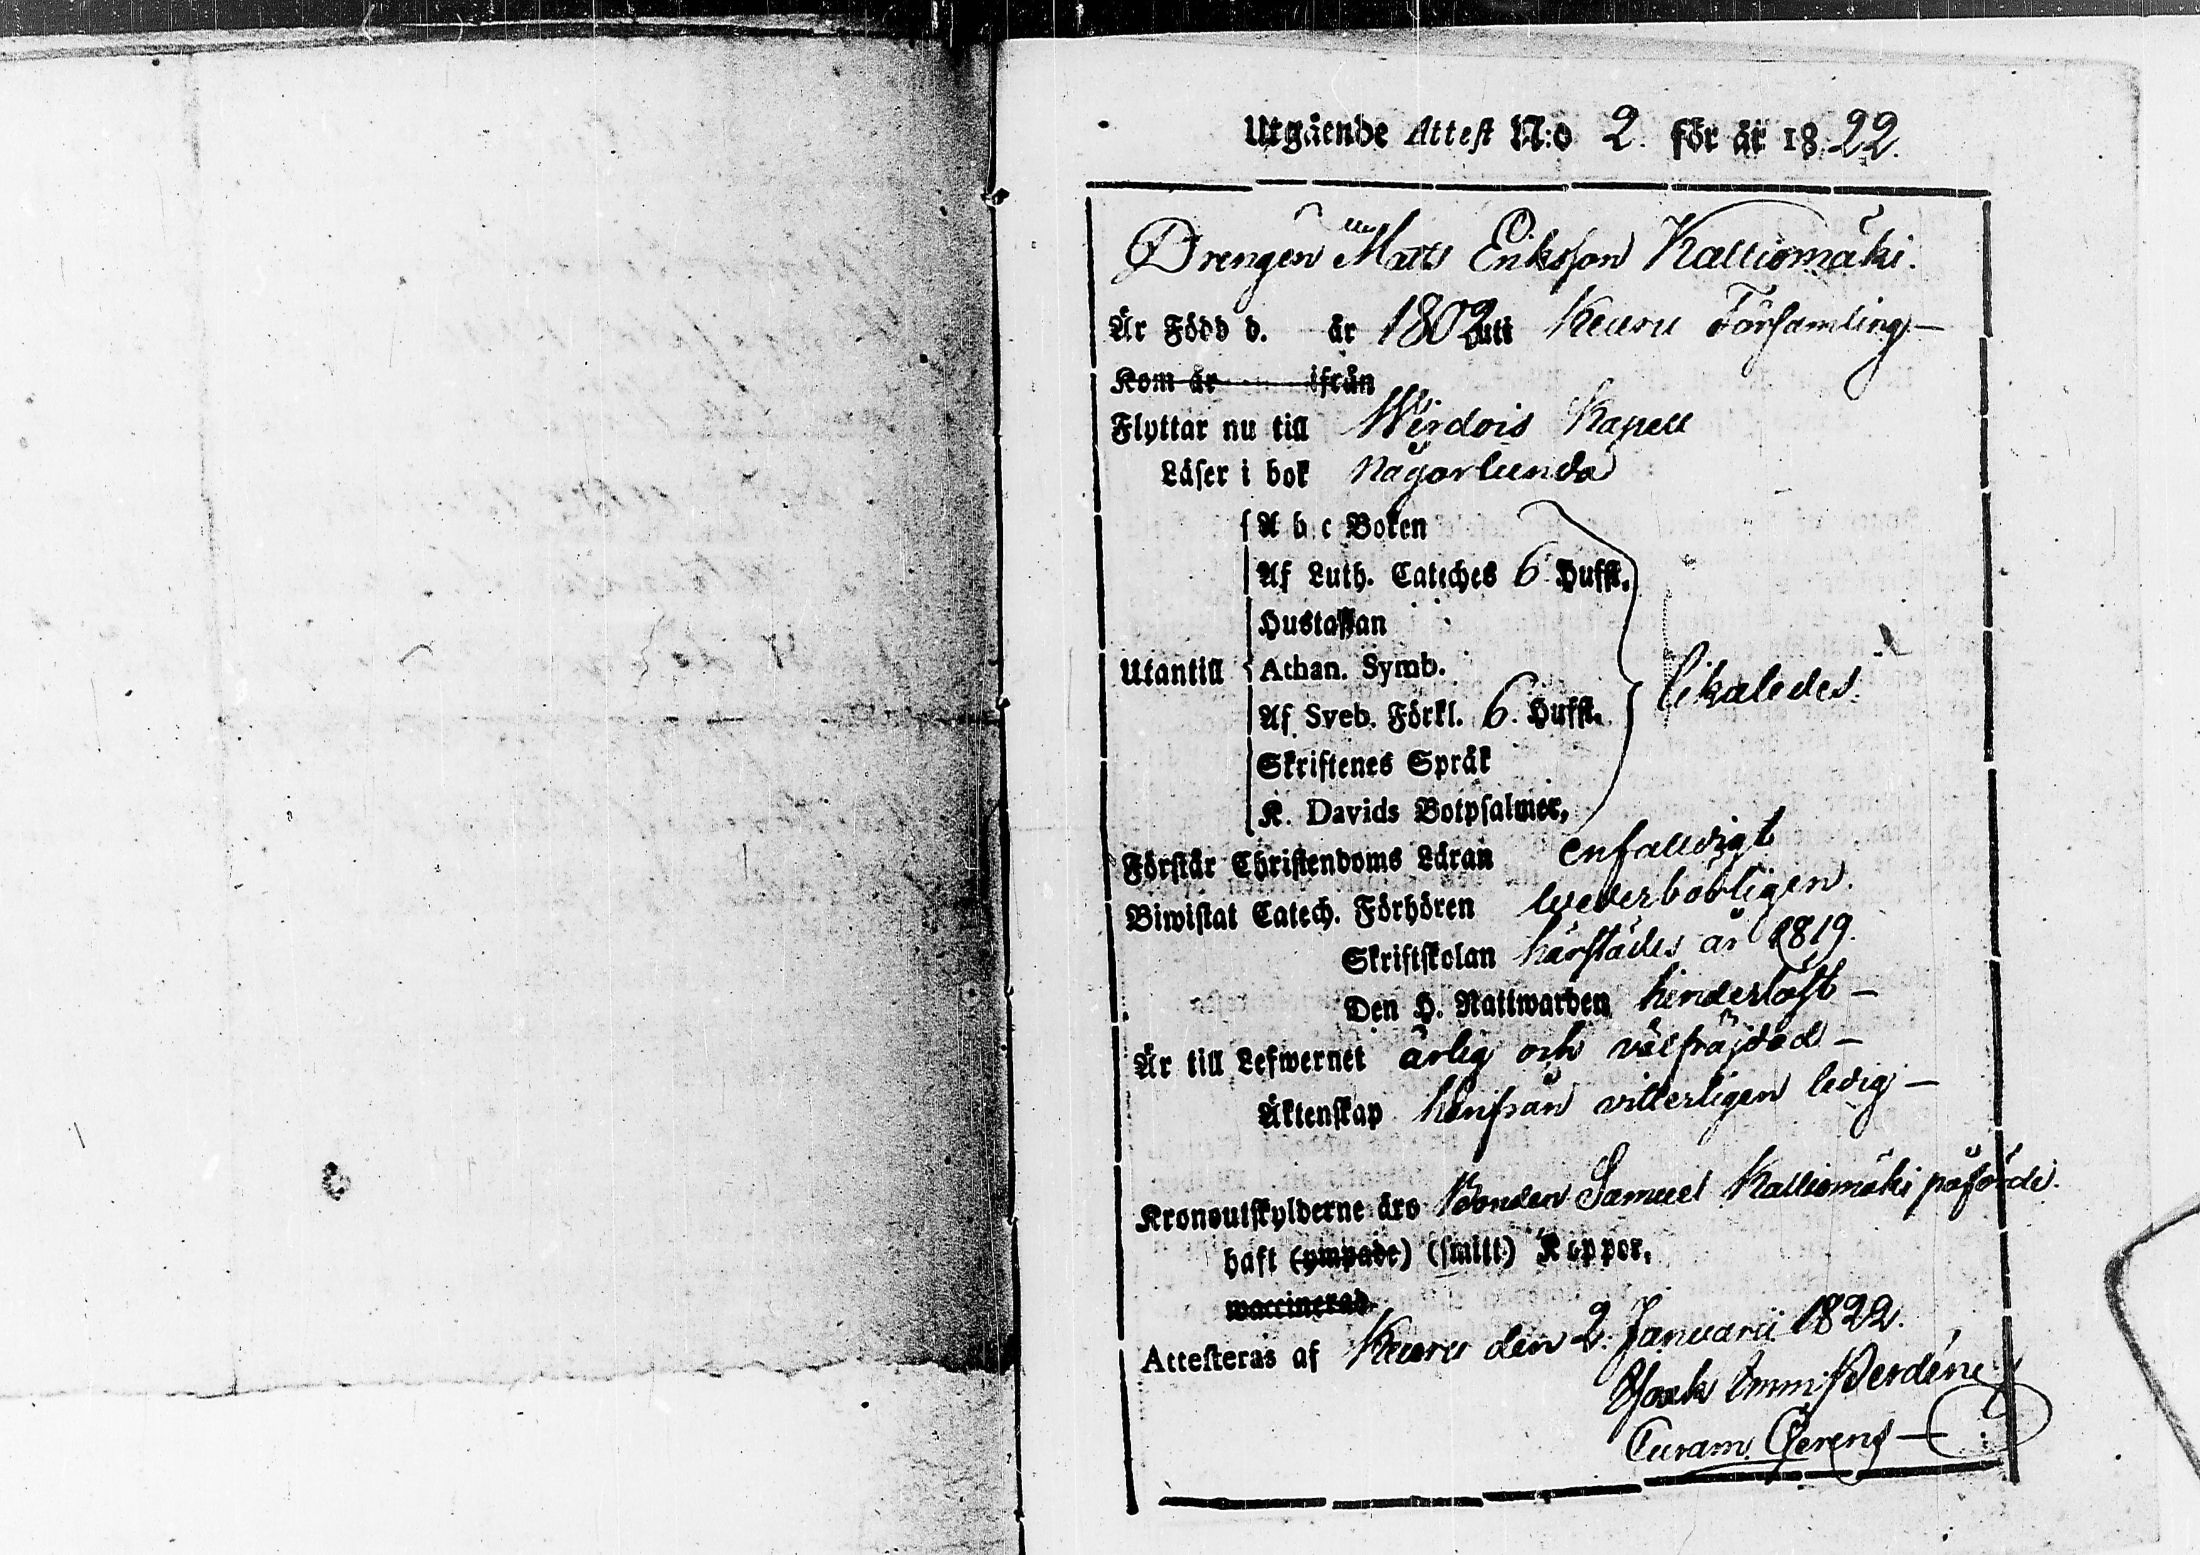 Utgående Attest N:o 2. för år 1822.
Drengen Matts Eriksson Kalliomäki.
Är Född d. år 1802 uti Keuru Församling —
Kom år ifrån
Flyttar nu till Wirdois Kapell
Läser i bok någorlunda
A b c Boken
Af Luth. Cateches 6. Hufst.
Hustaflan
Utantill Athan. Symb.
likaledes.
Af Sveb. Förkl. 6. Hufst.
Skriftenes Språk
K. Davids Botpsalmer,
Förstår Christendoms Läran enfaldigt
Biwistat Catech. Förhören wederbörligen.
Skriftskolan härstädes år 1819.
Den H. Nattwarden hinderlöst —
Är till Lefwernet ärlig och välfräjdad —
Äktenskap härifrån vitterligen ledig —
Kronoutskylderne äro Bonden Samuel Kalliomäki påförde.
haft (ympade) (smitt) Koppor,
waccinerad.
Attesteras af Keuru den 2. Januarii 1822.
Isak Emm:
Curam Gerens —